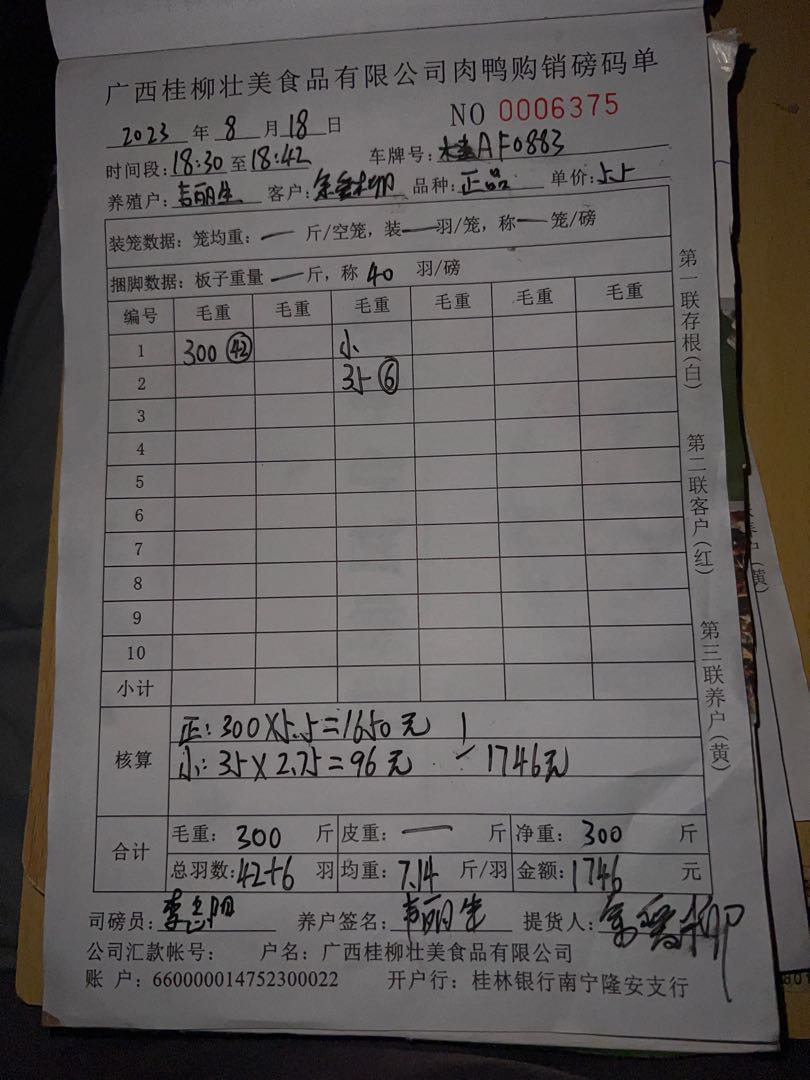 广西桂柳壮美食品有限公司肉鸭购销磅码单
NO 0006375
2023 年 8 月 18 日
时间段: 18:30 至 18:42 车牌号: AF0883
养殖户: 韦丽生 客户: 品种: 正品 单价: 5.5
装笼数据: 笼均重: — 斤/空笼, 装 — 羽/笼, 称 — 笼/磅
捆脚数据: 板子重量 — 斤, 称 40 羽/磅
编号 毛重 毛重 毛重 毛重 毛重 毛重
1 300 ㊷ 小
2 35 ⑥
3
4
5
6
7
8
9
10
小计
核算
正: 300×5.5=1650元
小: 35×2.75=96元 1746元
合计
毛重: 300 斤 皮重: — 斤 净重: 300 斤
总羽数: 42+6 羽 均重: 7.14 斤/羽 金额: 1746 元
司磅员: 养户签名: 韦丽生 提货人:
公司汇款帐号: 户名: 广西桂柳壮美食品有限公司
账 户: 660000014752300022 开户行: 桂林银行南宁隆安支行
第一联存根(白)
第二联客户(红)
第三联养户(黄)